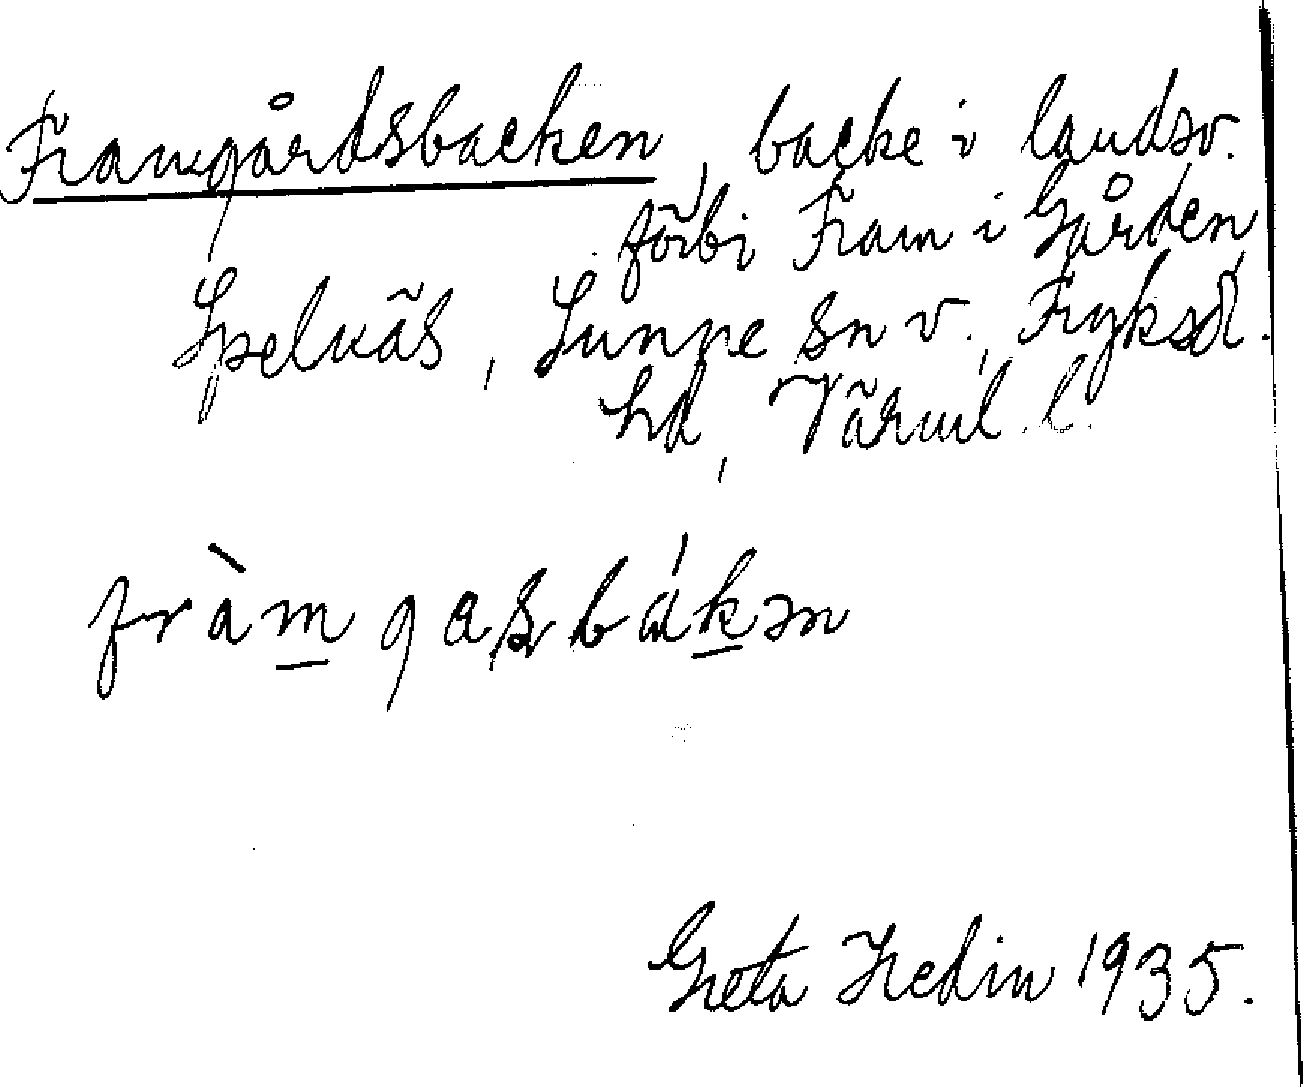 Framgårdsbacken, backe i landsv.
förbi Fram i Gården
Spelnäs, Sunne sn v., Fryksd.
hd, Värml. l.
fràmgasbákən
Greta Hedin 1935.